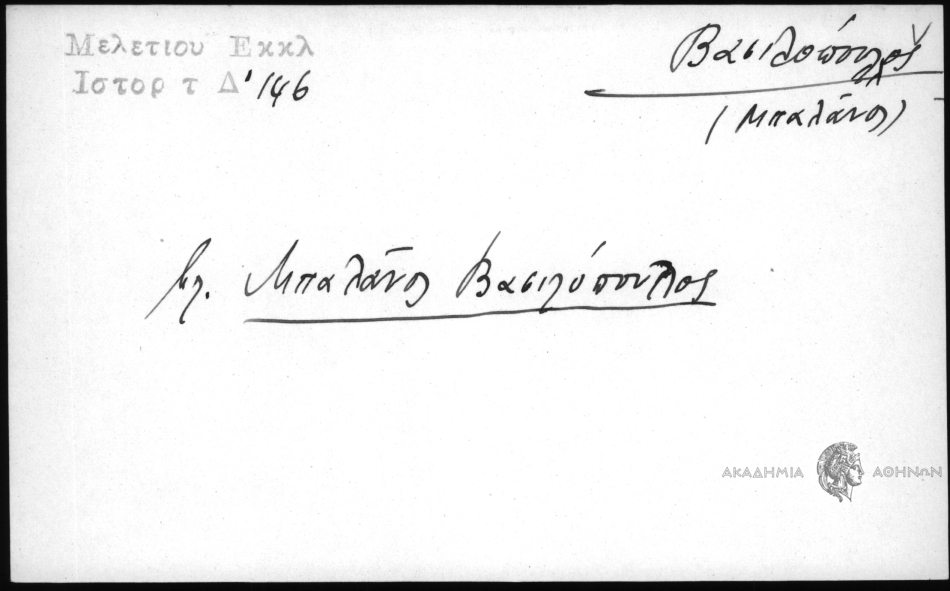 Μελετιου Εκκλ
Ιστορ τ Δ' 146
Βασιλόπουλος
(Μπαλάνος)
βλ. Μπαλάνος Βασιλόπουλος
ΑΚΑΔΗΜΙΑ ΑΘΗΝΩΝ